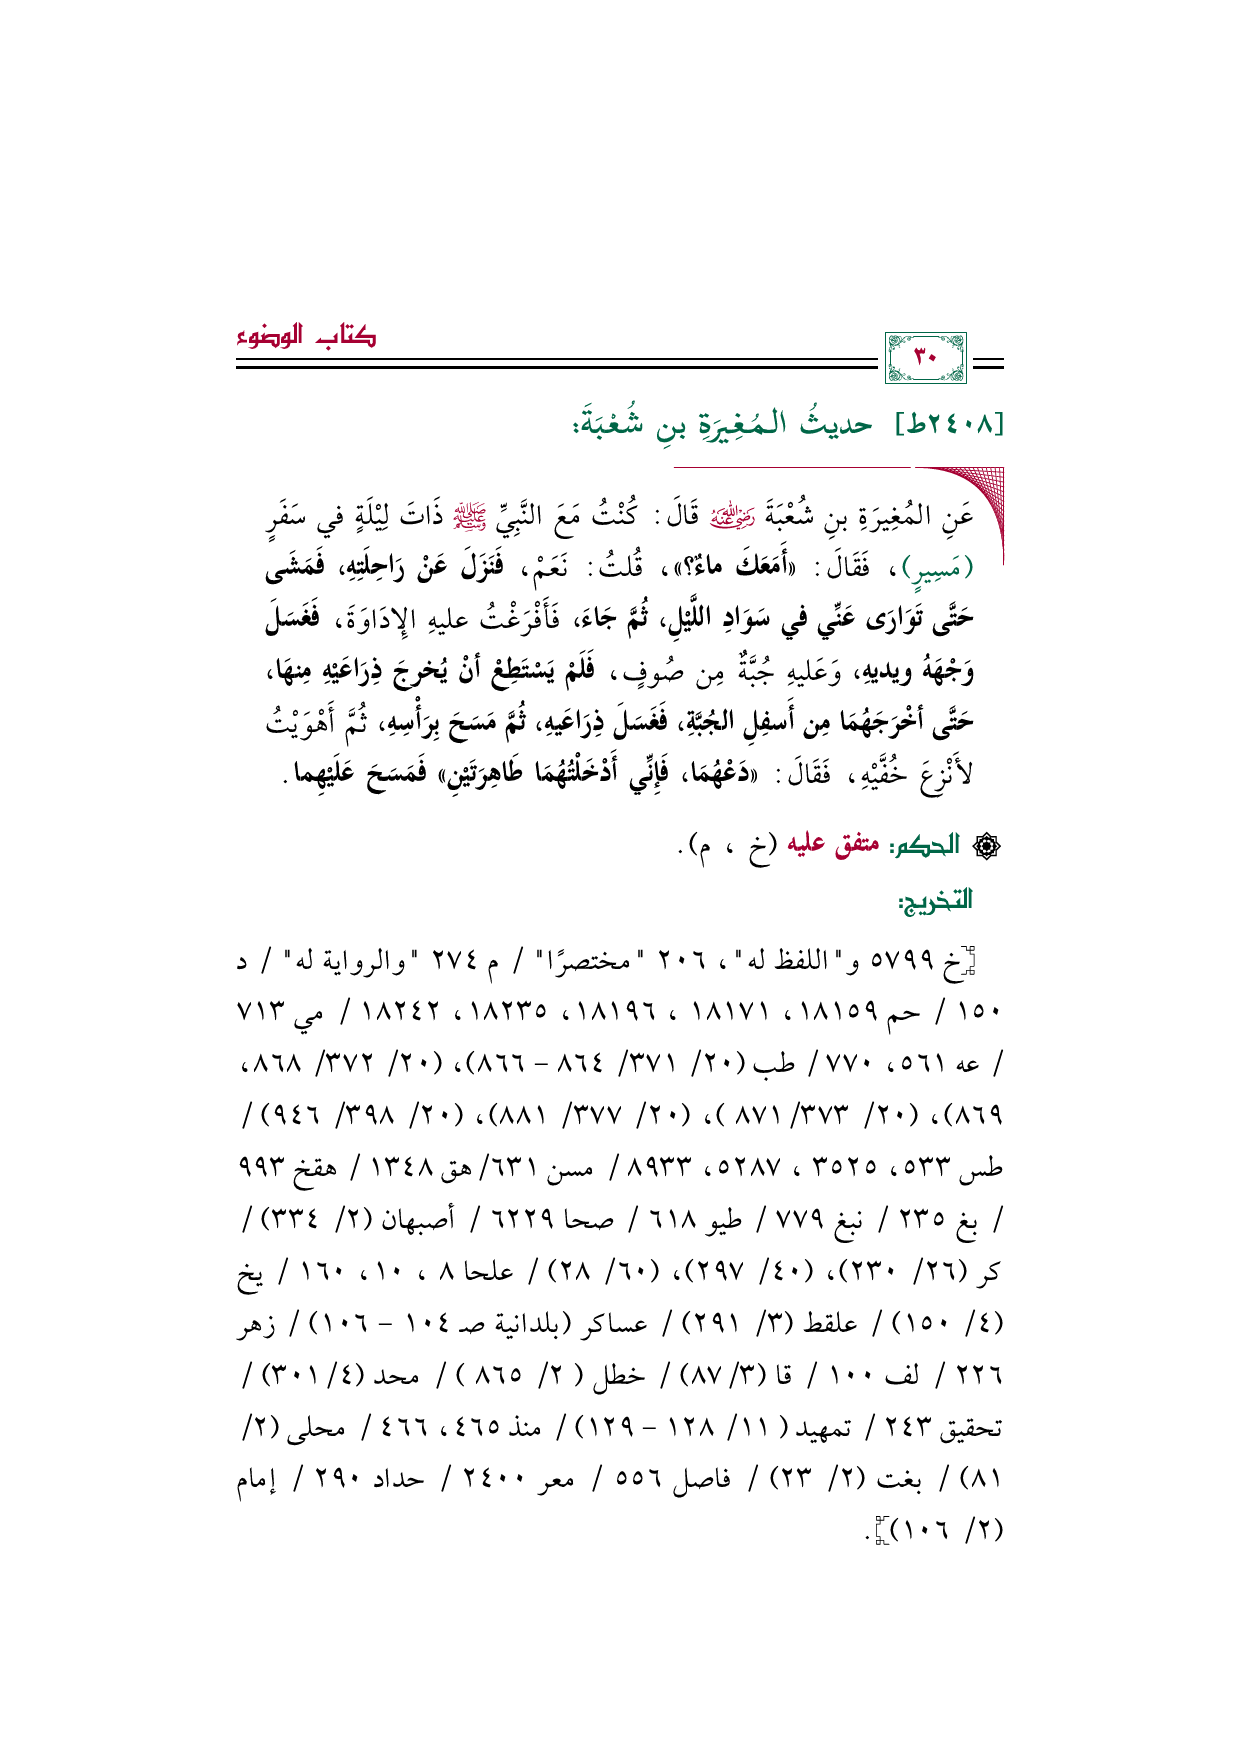 كتاب الوضوء
٣٠
[٢٤٠٨ط] حديثُ المُغِيرَةِ بنِ شُعْبَةَ:
عَنِ المُغِيرَةِ بنِ شُعْبَةَ رضي الله عنه قَالَ: كُنْتُ مَعَ النَّبِيِّ ﷺ ذَاتَ لَيْلَةٍ في سَفَرٍ
(مَسِيرٍ)، فَقَالَ: «أَمَعَكَ ماءٌ؟»، قُلتُ: نَعَمْ، فَنَزَلَ عَنْ رَاحِلَتِهِ، فَمَشَى
حَتَّى تَوَارَى عَنِّي في سَوَادِ اللَّيْلِ، ثُمَّ جَاءَ، فَأَفْرَغْتُ عليهِ الإِدَاوَةَ، فَغَسَلَ
وَجْهَهُ ويديهِ، وَعَليهِ جُبَّةٌ مِن صُوفٍ، فَلَمْ يَسْتَطِعْ أنْ يُخرجَ ذِرَاعَيْهِ مِنهَا،
حَتَّى أخْرَجَهُمَا مِن أَسفِلِ الجُبَّةِ، فَغَسَلَ ذِرَاعَيهِ، ثُمَّ مَسَحَ بِرَأْسِهِ، ثُمَّ أَهْوَيْتُ
لأَنْزِعَ خُفَّيْهِ، فَقَالَ: «دَعْهُمَا، فَإِنِّي أَدْخَلْتُهُمَا طَاهِرَتَيْنِ» فَمَسَحَ عَلَيْهِما.
الحكم: متفق عليه (خ ، م).
التخريج:
[خ ٥٧٩٩ و"اللفظ له"، ٢٠٦ "مختصرًا" / م ٢٧٤ "والرواية له" / د
١٥٠ / حم ١٨١٥٩، ١٨١٧١ ، ١٨١٩٦، ١٨٢٣٥، ١٨٢٤٢ / مي ٧١٣
/ عه ٥٦١، ٧٧٠ / طب (٢٠/ ٣٧١/ ٨٦٤ – ٨٦٦)، (٢٠/ ٣٧٢/ ٨٦٨،
٨٦٩)، (٢٠/ ٣٧٣/ ٨٧١ )، (٢٠/ ٣٧٧/ ٨٨١)، (٢٠/ ٣٩٨/ ٩٤٦) /
طس ٥٣٣، ٣٥٢٥ ، ٥٢٨٧، ٨٩٣٣ / مسن ٦٣١/ هق ١٣٤٨ / هقخ ٩٩٣
/ بغ ٢٣٥ / نبغ ٧٧٩ / طيو ٦١٨ / صحا ٦٢٢٩ / أصبهان (٢/ ٣٣٤) /
كر (٢٦/ ٢٣٠)، (٤٠/ ٢٩٧)، (٦٠/ ٢٨) / علحا ٨ ، ١٠، ١٦٠ / يخ
(٤/ ١٥٠) / علقط (٣/ ٢٩١) / عساكر (بلدانية صـ ١٠٤ – ١٠٦) / زهر
٢٢٦ / لف ١٠٠ / قا (٣/ ٨٧) / خطل ( ٢/ ٨٦٥ ) / محد (٤/ ٣٠١) /
تحقيق ٢٤٣ / تمهيد ( ١١/ ١٢٨ – ١٢٩) / منذ ٤٦٥، ٤٦٦ / محلى (٢/
٨١) / بغت (٢/ ٢٣) / فاصل ٥٥٦ / معر ٢٤٠٠ / حداد ٢٩٠ / إمام
(٢/ ١٠٦)].